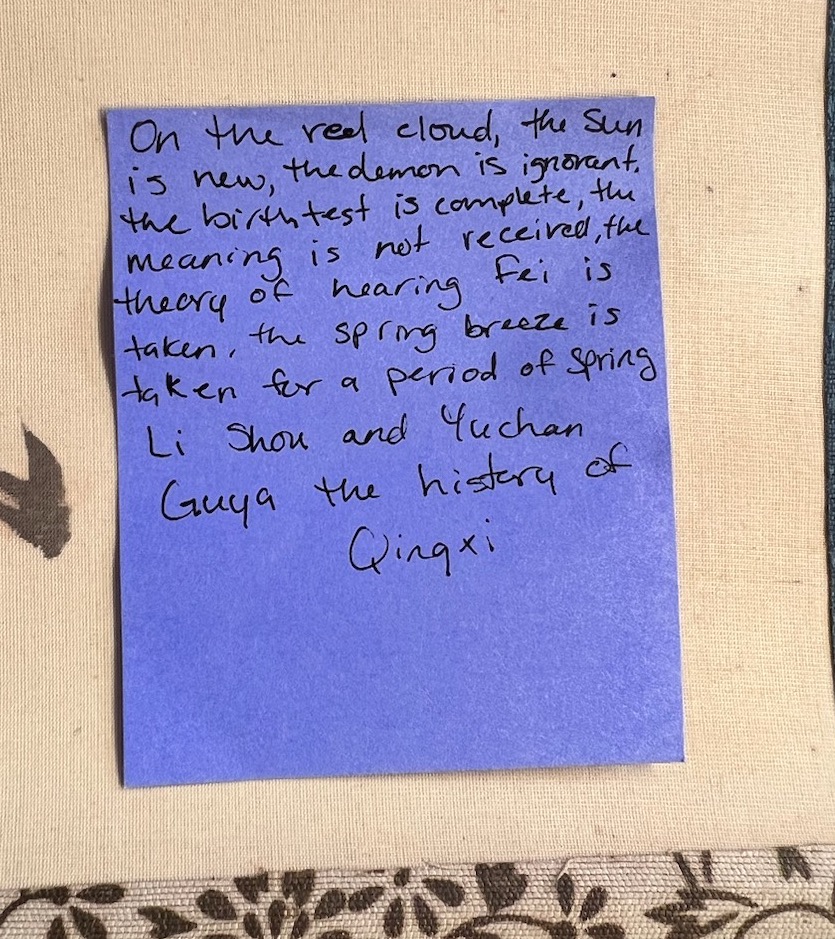 On the red cloud, the sun
is new, the demon is ignorant.
the birth test is complete, the
meaning is not received, the
theory of hearing Fei is
taken, the spring breeze is
taken for a period of Spring
Li Shou and Yuchan
Guya the history of
Qingxi